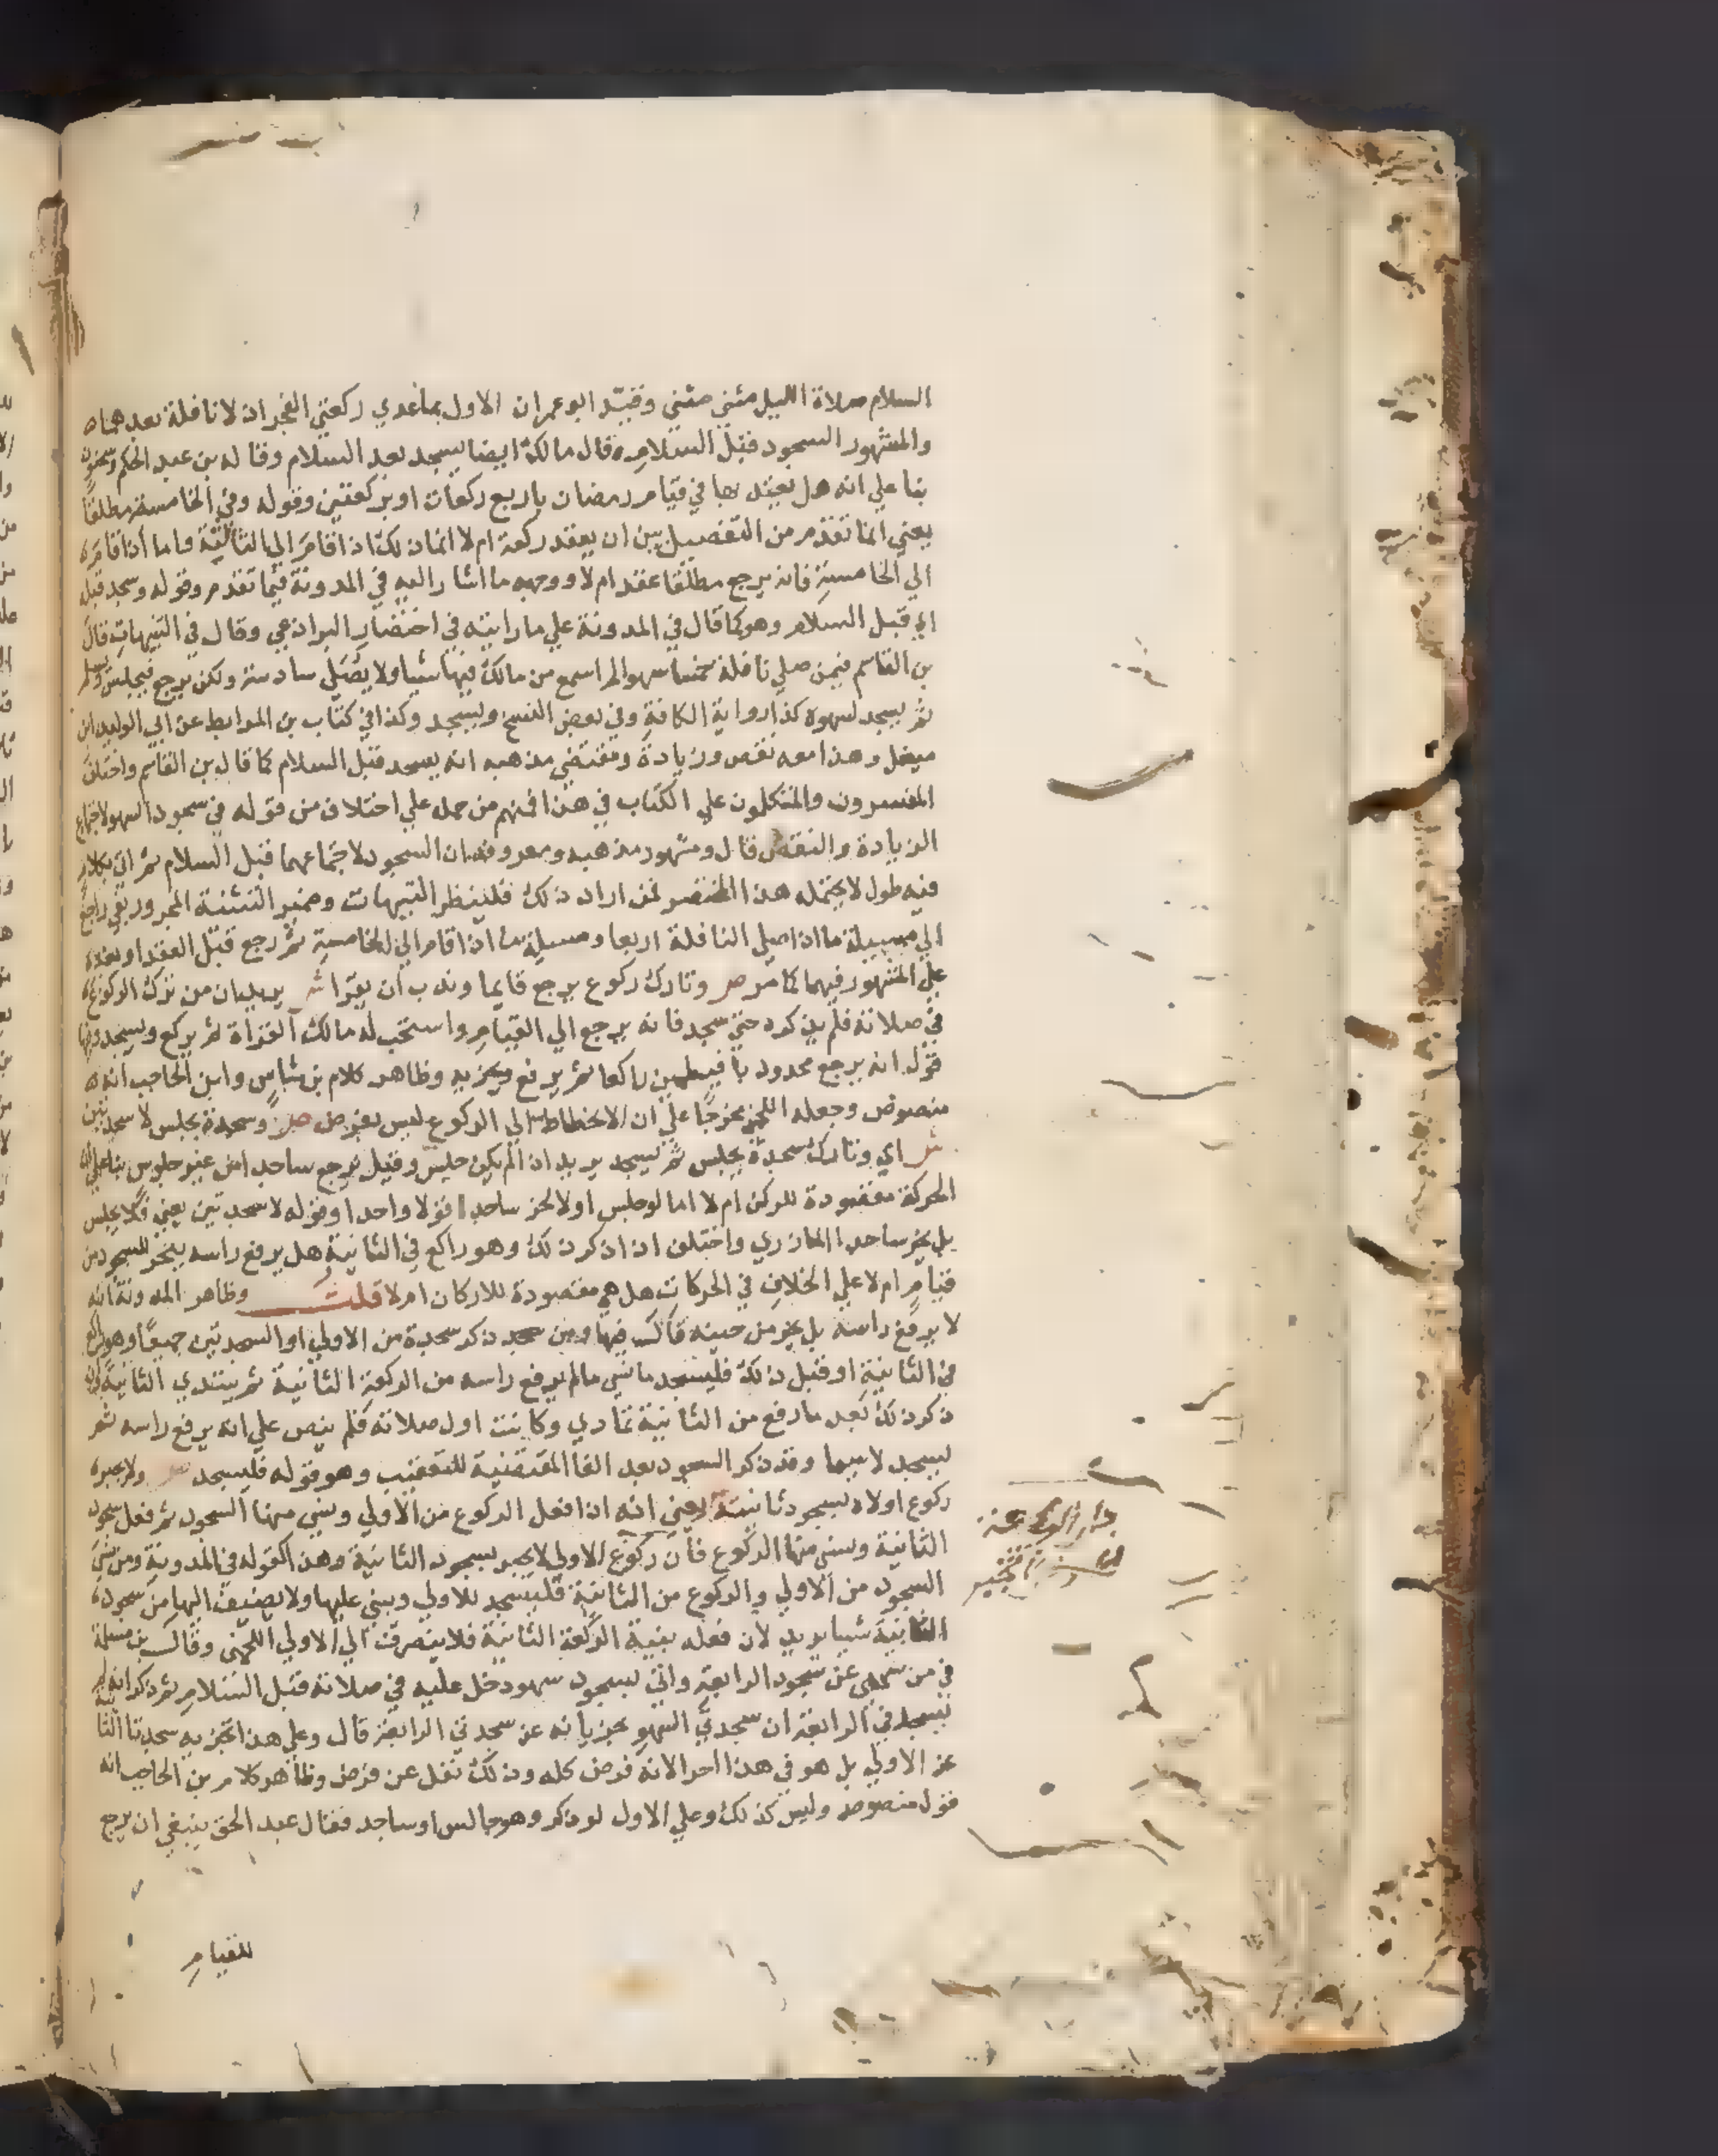 السلام صلاة الليل مثني مثني وقيد ابو عمران الاول بماعدي ركعتي الفجر ان لا نافلة بعدهما
والمشهور السجود قبل السلام قال مالك ايضا يسجد بعد السلام وقاله بن عبد الحكم وسحنون
بنا علي انه هل يعتد بها في قيام رمضان باربع ركعات او بركعتين وقوله وفي الخامسة مطلقا
يعني انما تقدم من التفصيل بين ان يعقد ركعة ام لا انما ذلك اذا قام الي الثالثة واما اذا قام
الي الخامسة فانه يرجع مطلقا عقد ام لا ووجهه ما اشار اليه في المدونة فيما تقدم وقوله وسجد قبله
اي قبل السلام وهو كما قال في المدونة علي ما رايته في اختصار البراذعي وقال في التنبيهات قال
بن القاسم فيمن صلي نافلة خمسا سهوا لم اسمع من مالك فيها شيا ولا يصلي سادسة ولكن يرجع فيجلس ويسلم
ثم يسجد لسهوه كذا رواية الكافة وفي بعض النسخ ويسجد وكذا في كتاب بن المرابط عن ابي الوليد ابن
ميقل وهذا معه نقص وزيادة ومقتضي مذهبه انه يسجد قبل السلام كما قال بن القاسم واختلف
المفسرون والمتكلمون علي الكتاب في هذا فمنهم من حمله علي اختلاف من قوله في سجود السهو لاجتماع
الزيادة والنقص قال ومشهور مذهبه ومعروفه ان السجود لاجتماعهما قبل السلام ثم اتي بكلام
فيه طول لا يحتمله هذا المختصر فمن اراد ذلك فلينظر التنبيهات وضمير التثنية المجرور بفي راجع
الي مسيلة ما اذا صلي النافلة اربعا ومسيلة ما اذا قام الي الخامسة ثم رجع قبل العقد او بعده
علي المشهور فيهما كما مر ص وتارك ركوع يرجع قايما وندب ان يقرا ش يريد ان من ترك الركوع
في صلاته فلم يذكره حتي سجد فانه يرجع الي القيام واستحب له مالك القراة ثم يركع ويسجد
قول انه يرجع محدودبا راكعا ثم يرفع ويجزيه وظاهر كلام بن شاس وابن الحاجب انه
منصوص وجعله اللخمي مخرجا علي ان الانحطاط الي الركوع ليس بفرض ص وسجدة يجلس لا سجدتين
ش اي وتارك سجدة يجلس ثم يسجد يريد ان لم يكن جلس وقيل يرجع ساجدا من غير جلوس بنا علي ان
الحركة مقصودة للركن ام لا اما لو جلس اولا لخر ساجدا قولا واحدا وقوله لا سجدتين يعني فلا يجلس
بل يخر ساجدا المازري واختلف اذا ذكر ذلك وهو راكع في الثانية هل يرفع راسه ليخر للسجود من
قيام ام لا علي الخلاف في الحركات هل هي مقصودة للاركان ام لا قلت وظاهر المدونة انه
لا يرفع راسه بل يخر من حينه قال فيها ومن ذكر سجدة من الاولي او السجدتين جميعا وهو راكع
في الثانية او قبل ذلك فليسجد ما نسي ما لم يرفع راسه من الركعة الثانية ثم يبتدي الثانية
ذكر ذلك بعد ما رفع من الثانية تمادي وكانت اول صلاته فلم ينص علي انه يرفع راسه ثم
يسجد لا سيما وقد ذكر السجود بعد الفا المقتضية للتعقيب وهو قوله فليسجد ص ولا يجبر
ركوع اولاه بسجود ثانيته يعني انه اذا فعل الركوع من الاولي ونسي منها السجود ثم فعل سجود
الثانية ونسي منها الركوع فان ركوع الاولي لا يجبر بسجود الثانية وهذا كقوله في المدونة ومن نسي
السجود من الاولي والركوع من الثانية فليسجد للاولي ويبني عليها ولا يضيف اليها من سجود
الثانية شيا يريد لان فعله بنية الركعة الثانية فلا ينصرف الي الاولي اللخمي وقال بن مسلمة
في من سهي عن سجود الرابعة واتي بسجود سهو دخل عليه في صلاته قبل السلام ثم ذكر انه لم
يسجد في الرابعة ان سجدتي السهو يجزيانه عن سجدتي الرابعة قال وعلي هذا تجزيه سجدتا الثانية
عن الاولي بل هو في هذا احرا لانه فرض كله وذلك نفل عن فرض وظاهر كلام بن الحاجب انه
قول منصوص وليس كذلك وعلي الاول لو ذكر وهو جالس او ساجد فقال عبد الحق ينبغي ان يرجع
للقيام